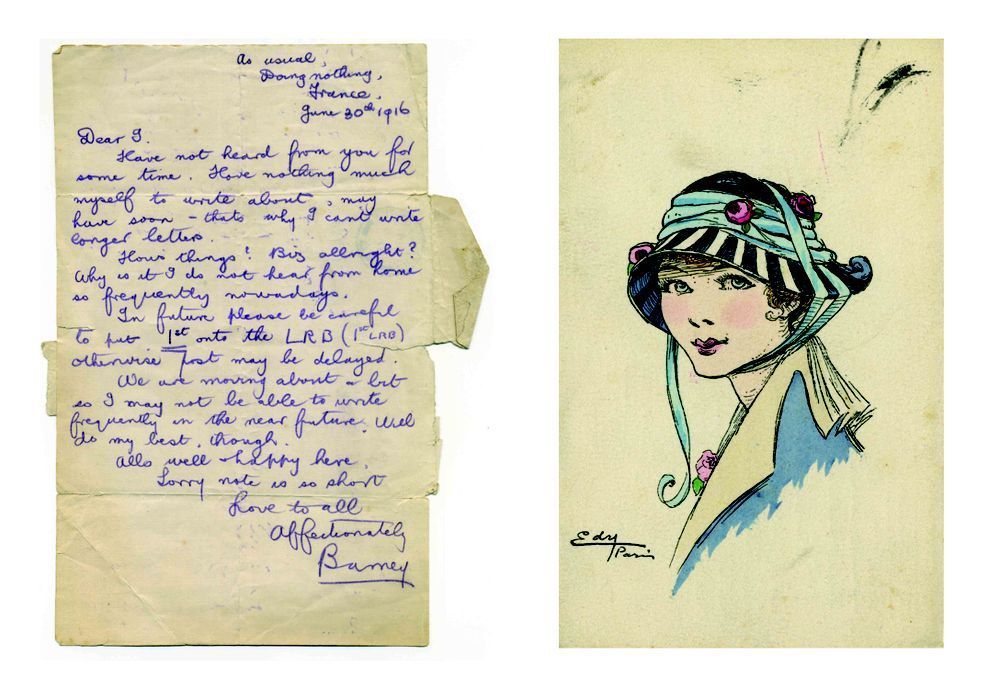 As usual,
Doing nothing,
France.
June 30th 1916
Dear I.
Have not heard from you for
some time. Have nothing much
myself to write about, may
have soon - thats why I cant write
longer letters.
Hows things? Biz allright?
Why is it I do not hear from home
so frequently nowadays.
In future please be careful
to put 1st onto the LRB (1st LRB)
otherwise post may be delayed.
We are moving about a bit
so I may not be able to write
frequently in the near future. Will
do my best, though.
Alls well & happy here.
Sorry note is so short
Love to all
Affectionately
Barney
Edy
Paris